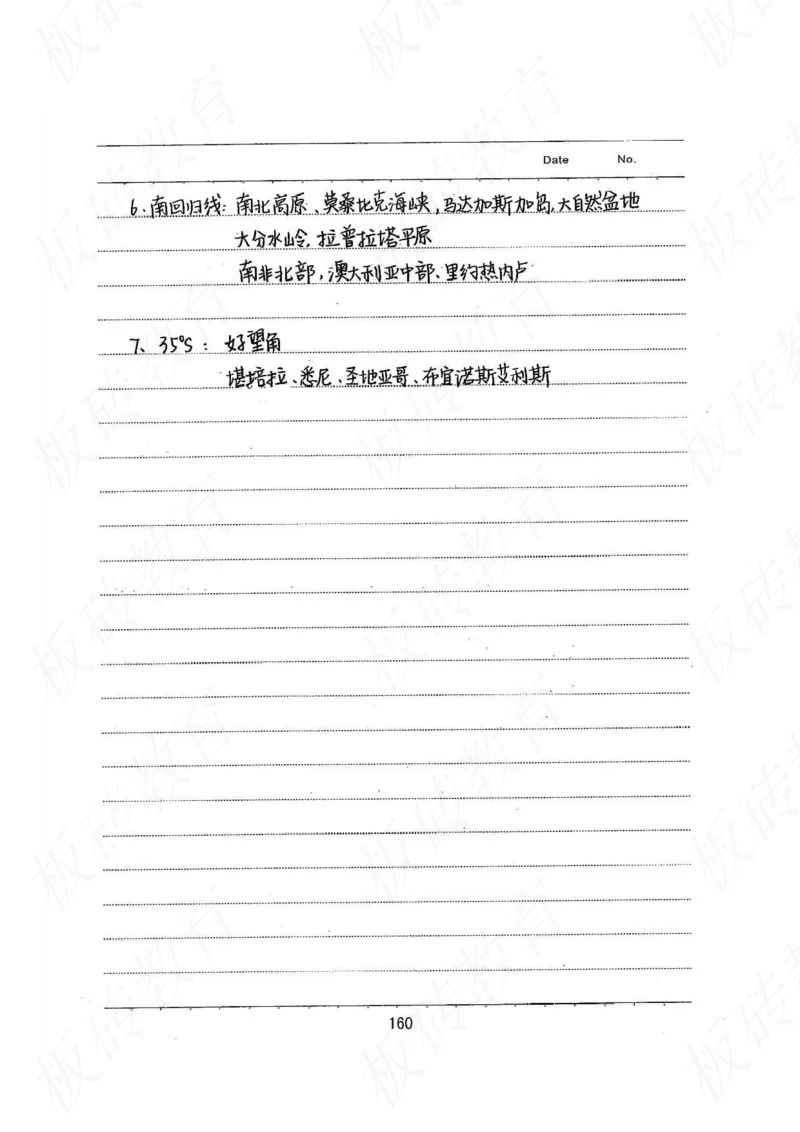 Date No.
6、南回归线：南北高原、莫桑比克海峡，马达加斯加岛，大自然盆地
大分水岭，拉普拉塔平原
南非北部，澳大利亚中部、里约热内卢
7、35°S：好望角
堪培拉、悉尼、圣地亚哥、布宜诺斯艾利斯
160
板砖教育